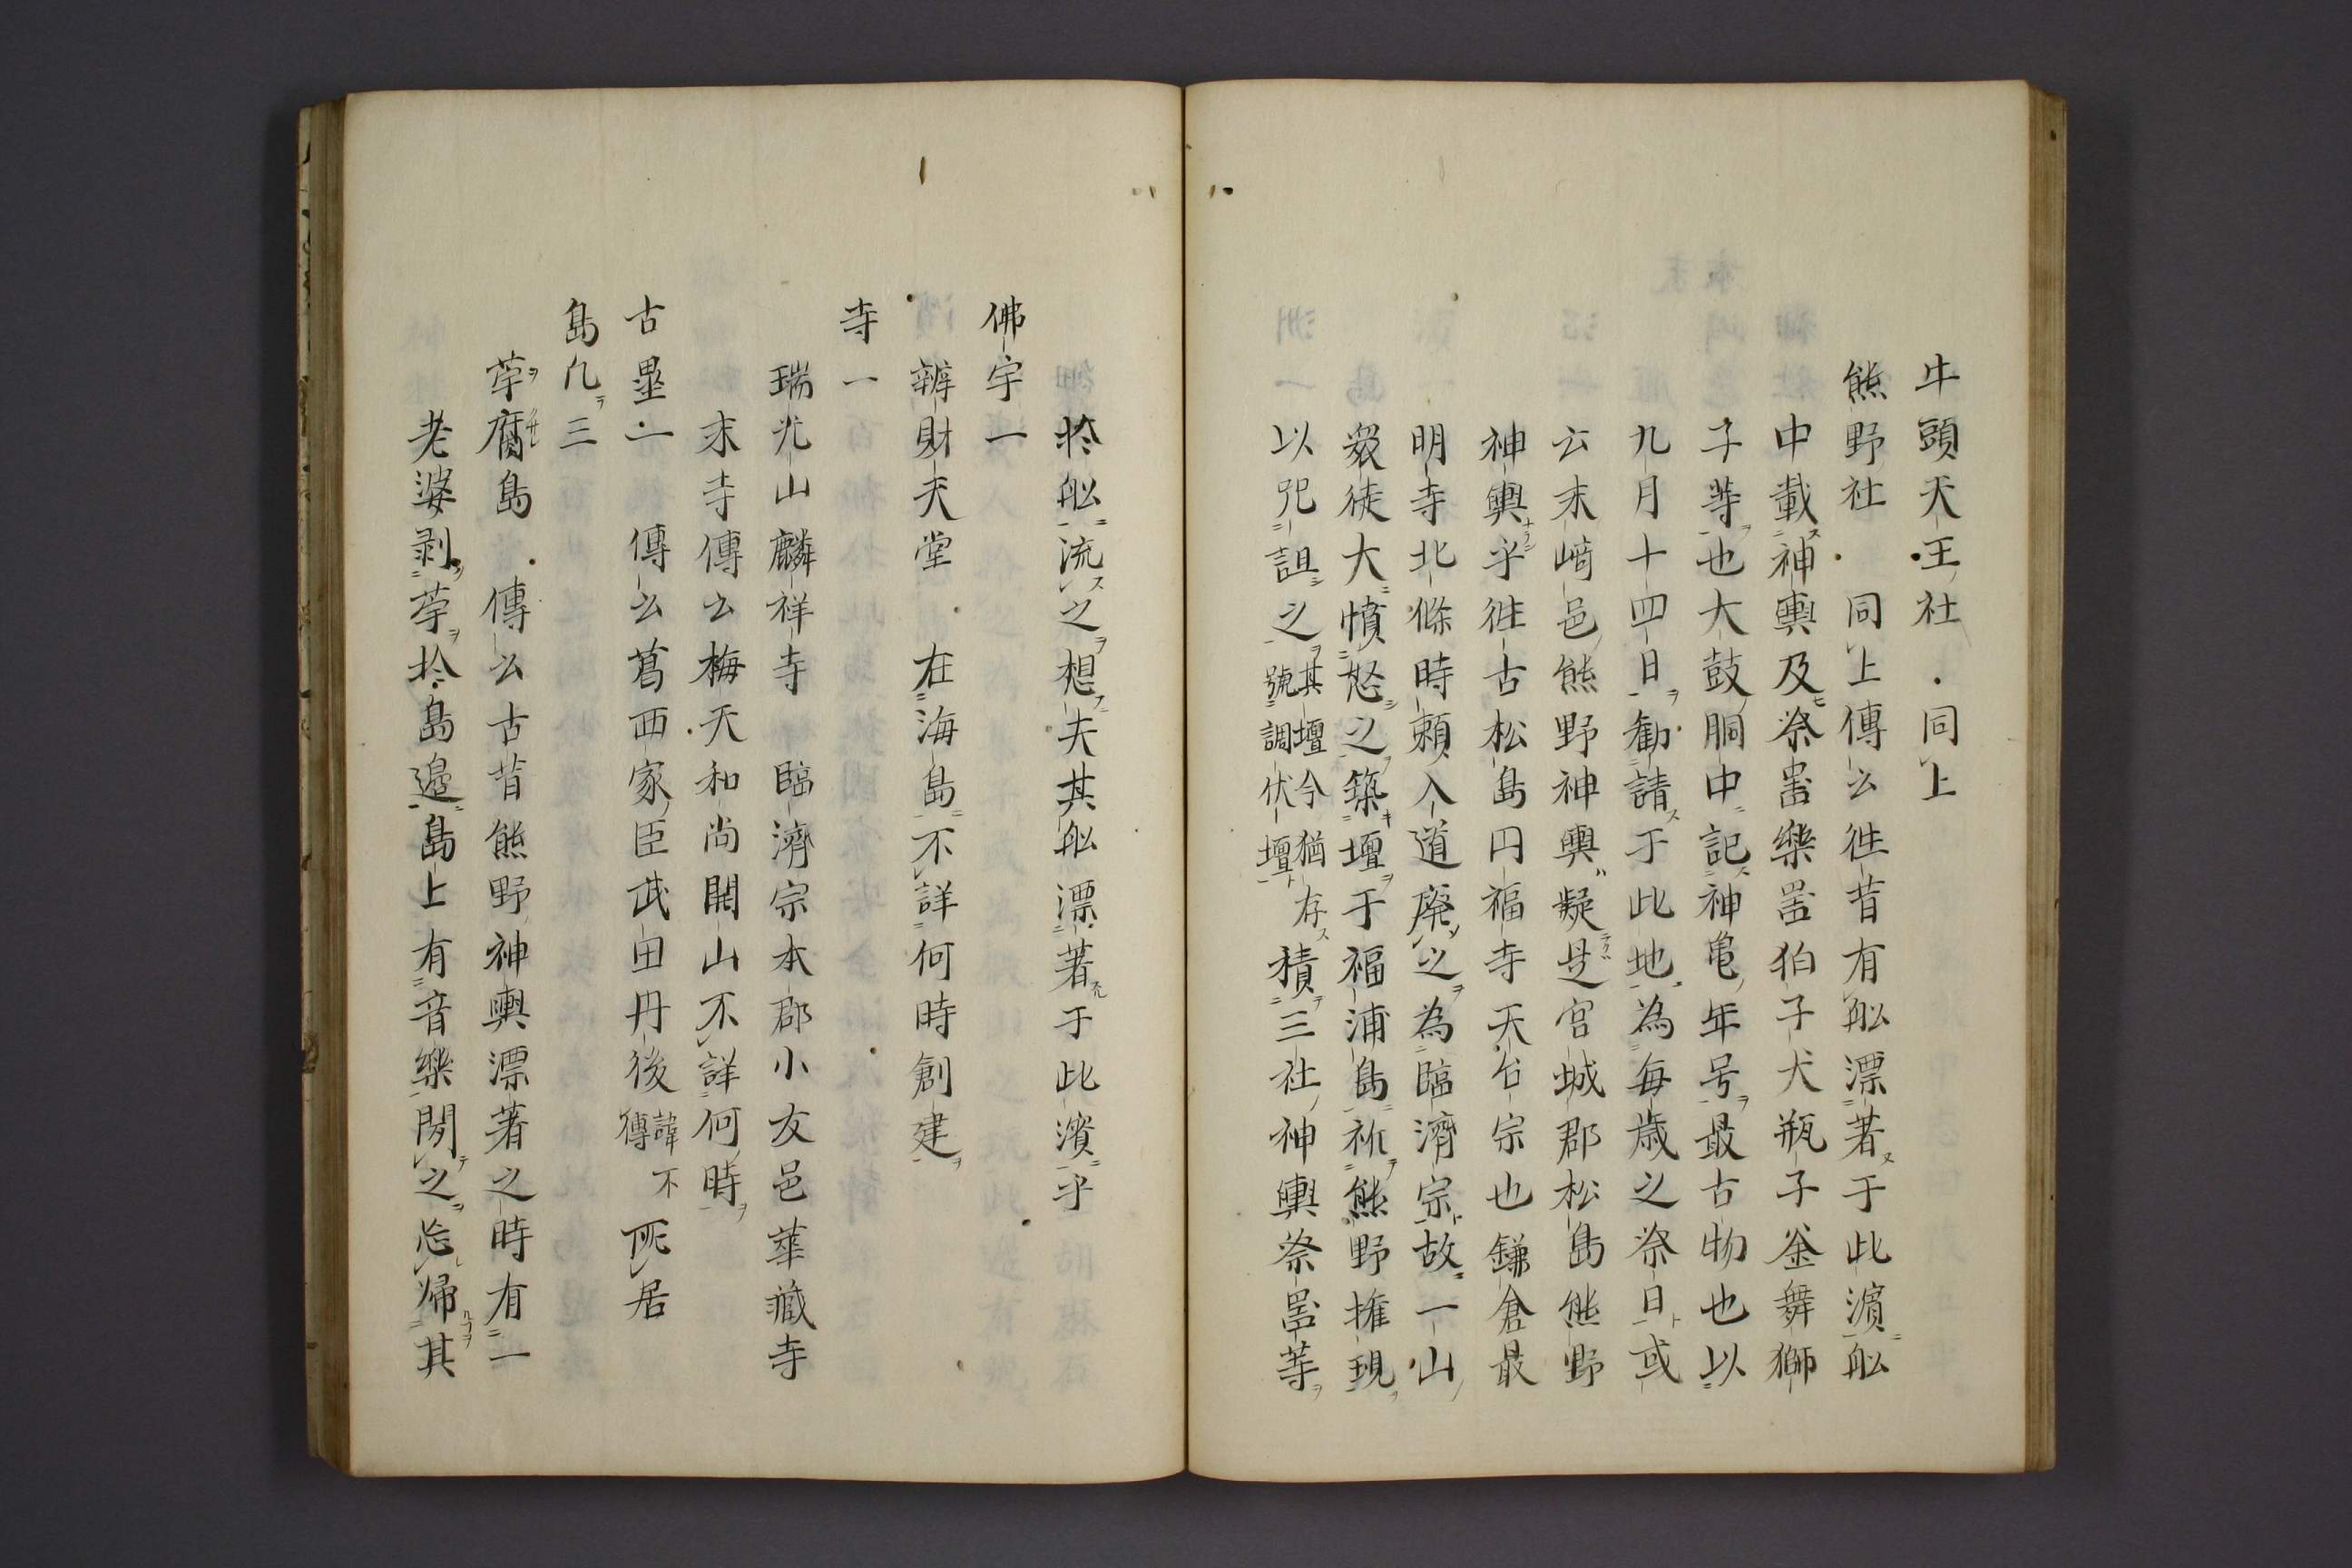 牛頭天王社 同上
熊野社 同上傳云徃昔有舩漂著于此濵舩
中載神輿及祭噐樂噐狛子犬瓶子釜舞獅
子等也大鼓胴中記神亀年号最古物也以
九月十四日勧請于此地為毎歳之祭日或
云末﨑邑熊野神輿疑是宮城郡松島熊野
神輿乎徃古松島円福寺天台宗也鎌倉最
明寺北條時頼入道廃之為臨濟宗故一山
衆徒大憤怒之築壇于福浦島祈熊野権現
以咒詛之其壇今猶存號調伏壇積三社神輿祭噐等
於舩流之想夫其舩漂著于此濵乎
佛宇一
辨財天堂 在海島不詳何時創建
寺一
瑞光山麟祥寺 臨濟宗本郡小友邑華藏寺
末寺傳云梅天和尚開山不詳何時
古壘一 傳云葛西家臣武田丹後諱不傳所居
島凡三
荢腐島 傳云古昔熊野神輿漂著之時有一
老婆剥荢於島邉島上有音樂聞之忘帰其